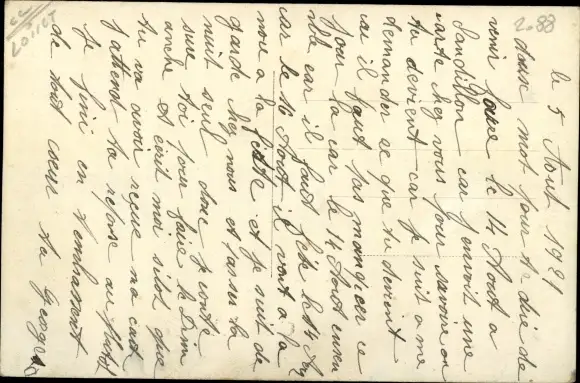 le 5 Aout 1921
deux mot pour te dire de
venir le 14 Aout a
Sandillon car j'envoit une
carte chez vous pour savoire ou
tu devient car je suit a me
demander ce que tu devient
car il faut pas manquer ce
jour la car le 14 Aout
car il faut
car le 16 Aout il vont a la
nous a la et je suit de
garde chez nous et passer la
nuit seul donc je conte
sur toi pour faire le Dim
anche et ecrit moi sitot que
tu va avoir recue ma carte
j'attend ta reponse au plutot
je fini en t'embrassent
de tout coeur ta
2.88
LOIRET